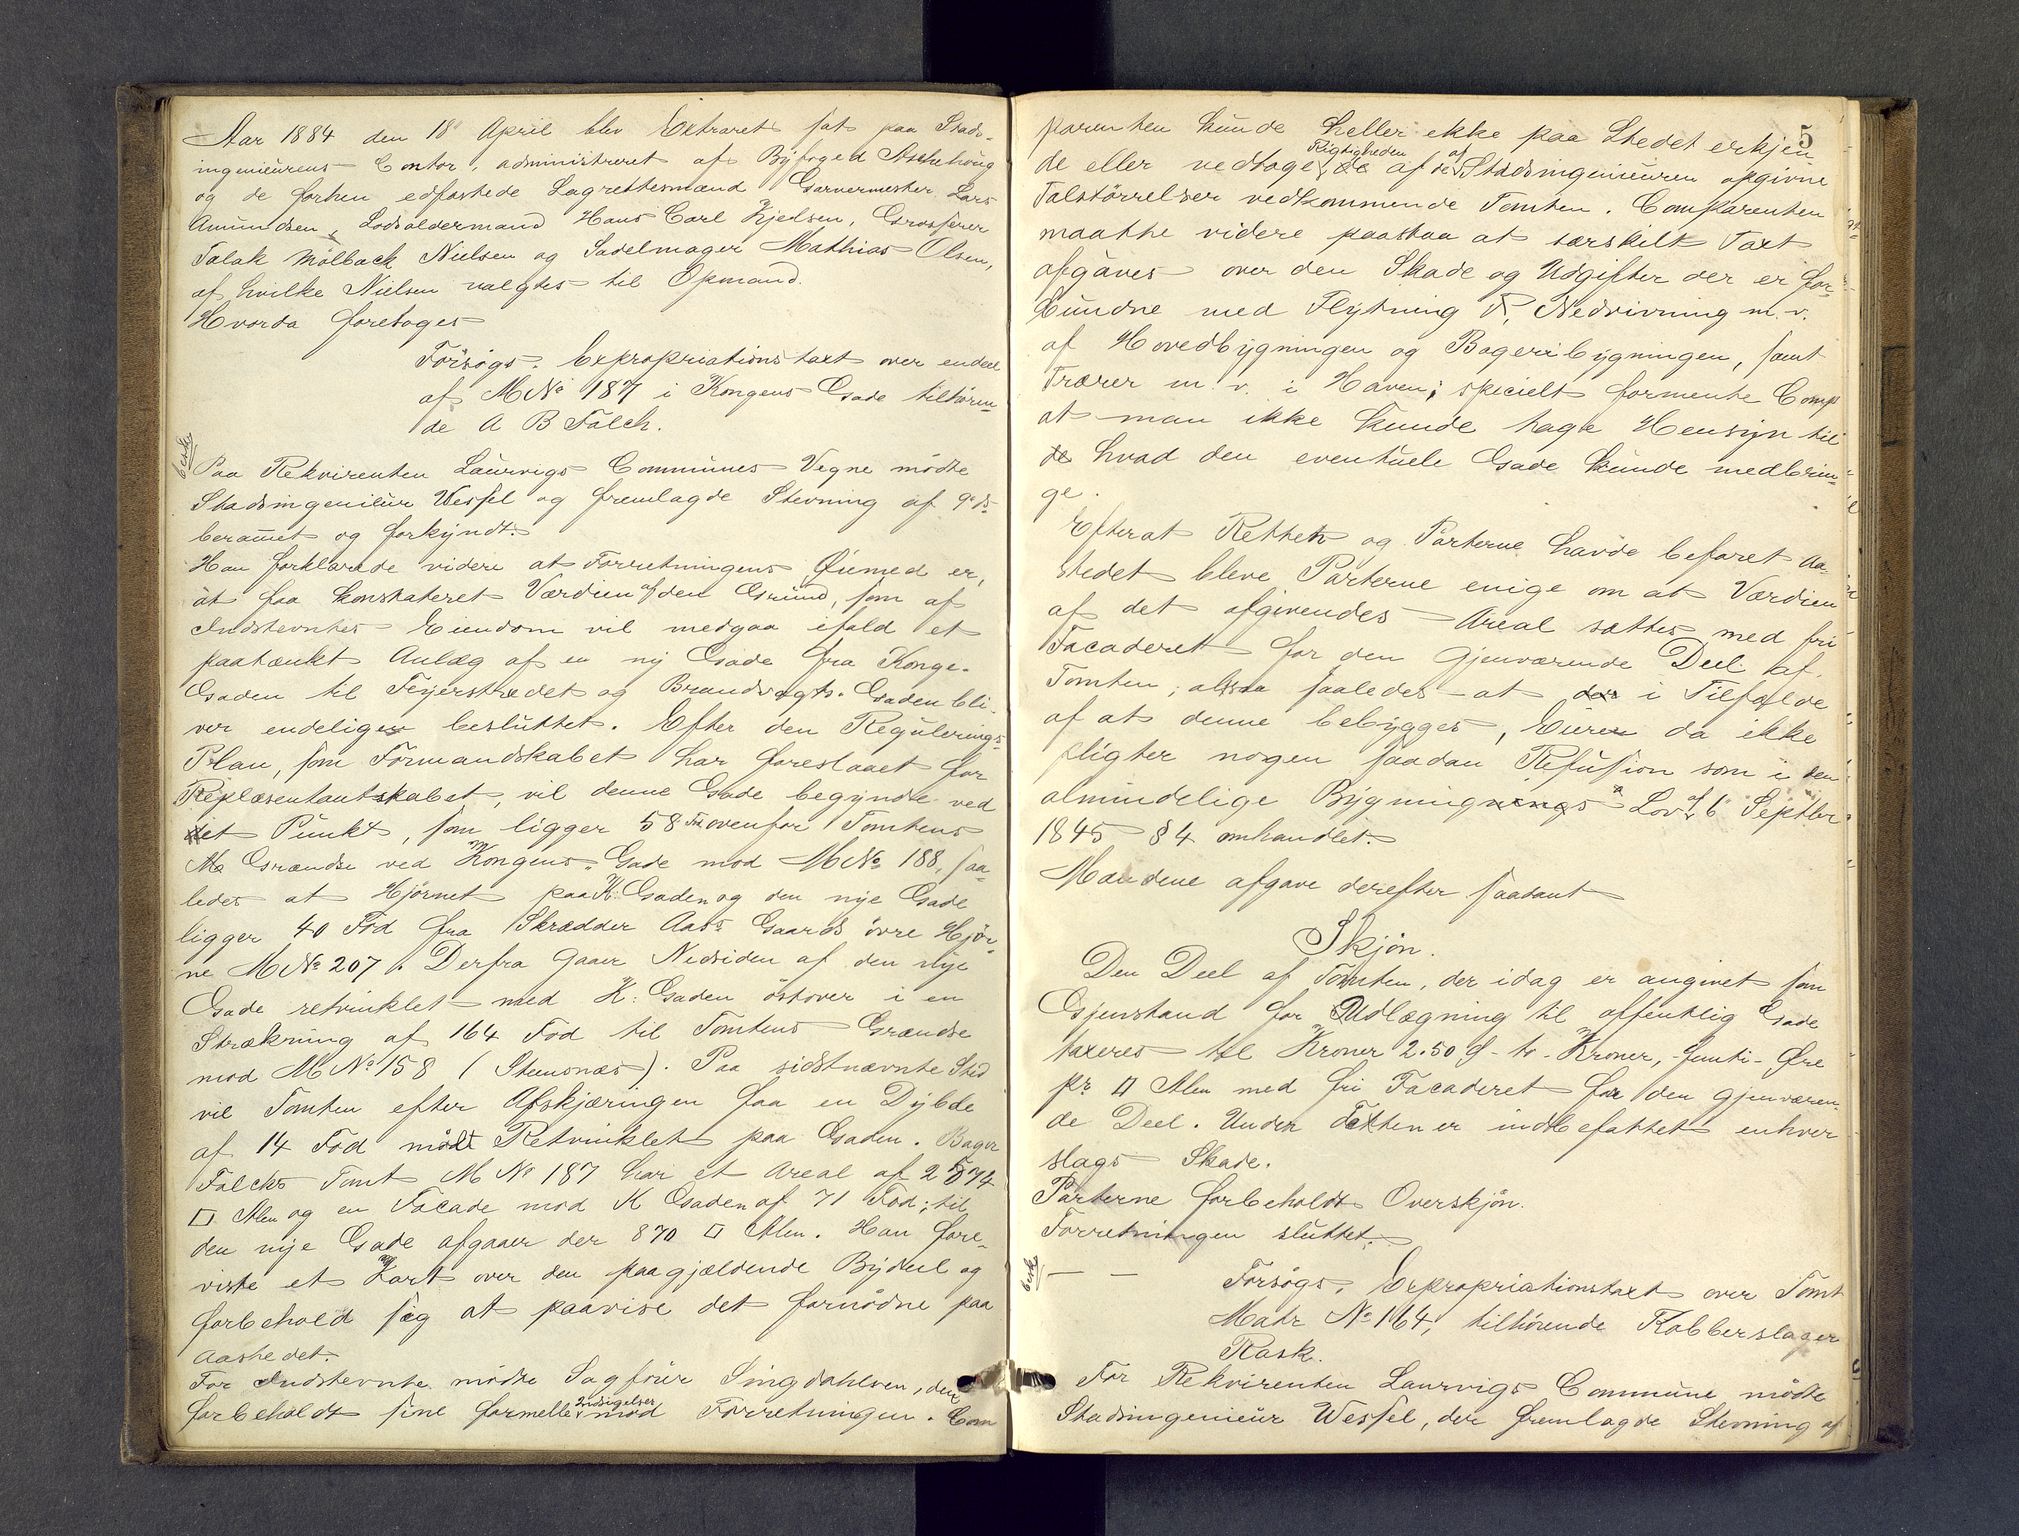 Aar 1884 den 18 April blev Extraret sat paa Stads-
ingenieurens Contor, administreret af Byfoged Aschehoug
og de forhen edfæstede Lagrettesmænd Garvermester Lars
Amundsen, Lodsoldermand Hans Carl Kjelsen, Grosserer
Talak Mølback Nielsen og Sadelmager Mathias Olsen,
af hvilke Nielsen valgtes til Opmand.
Hvorda foretoges
Forsøgs. Expropriationstaxt over endeel
af M No 187 i Kongens Gade tilhøren-
de A B Falch.
besk
Paa Rekvirenten Laurvigs Communes Vegne mødte
Stadsingenieur Wessel og fremlagde Stevning af 9 ds
berammet og forkyndt.
Han forklarede videre at Forretningens Øiemed er,
at faa konstateret Værdien af den Grund, som af
Indstevntes Eiendom vil medgaa ifald et
paatænkt Anlæg af en ny Gade fra Konge-
Gaden til Feyerstrædet og Brandvagts-Gaden bli-
ver endeligen besluttet. Efter den Regulerings-
Plan, som Formandskabet har foreslaaet for
Repræsentantskabet, vil denne Gade begynde ved
et Punkt, som ligger 58 Fod ovenfor Tomtens
Grændse ved Kongens Gade mod M No 188, saa-
ledes at Hjørnet paa K. Gaden og den nye Gade
ligger 40 Fod fra Skrædder Aas's Gaards øvre Hjør-
ne M No 207. Derfra gaaer Nedsiden af den nye
Gade retvinklet med K. Gaden østover i en
Strækning af 164 Fod til Tomtens Grændse
mod M No 158 (Stensnæs). Paa sidstnævnte Sted
vil Tomten efter Afskjæringen faa en Dybde
af 14 Fod målt Retvinklet paa Gaden. Bager
Falcks Tomt M No 187 har et Areal af 2574
□ Alen og en Facade mod K Gaden af 71 Fod; til
den nye Gade afgaaer der 870 □ Alen. Han fore-
viste et Kart over den paagjældende Bydeel og
forbeholdt sig at paavise det fornødne paa
Aastedet.
For Indstevnte mødte Sagfører Singdahlsen, der
forbeholdt sine formelle Indsigelser mod Forretningen. Com
5
parenten kunde heller ikke paa Stedet erkjen
de eller vedtage Rigtigheden af de af Stadsingenieuren opgivne
Talstørrelser vedkommende Tomten. Comparenten
maatte videre paastaa at særskilt Taxt
afgaves over den Skade og Udgifter der er for-
bundne med Flytning, Nedrivning m. v.
af Hovedbygningen og Bageribygningen, samt
Trærer m. v. i Haven; specielt formente Comp
at man ikke kunde tage Hensyn til
hvad den eventuele Gade kunde medbrin-
ge.
Efterat Retten og Parterne havde befaret Aa-
stedet bleve Parterne enige om at Værdien
af det afgivendes Areal sættes med fri
Facaderet for den gjenværende Deel af
Tomten; altsaa saaledes at der i Tilfælde
af at denne bebygges, Eieren da ikke
pligter nogen saadan Refusion som i den
almindelige Bygningslov af 6 Septbr
1845 § 4 omhandlet.
Mændene afgave derefter saadant
Skjøn.
Den Deel af Tomten, der idag er angivet som
Gjenstand for Udlægning til offentlig Gade
taxeres til Kroner 2.50 Ø - to - Kroner, - femti - Øre
pr □ Alen med fri Facaderet for den gjenværen-
de Deel. Under Taxten er indbefattet enhver
slags Skade.
Parterne forbeholdt Overskjøn.
Forretningen sluttet.
besk
Forsøgs, Expropriationstaxt over Tomt
Matr No 164, tilhørende Kobberslager
Rask.
For Rekvirenten Laurvigs Commune mødte
Stadsingenieur Wessel, der fremlagde Stevning af